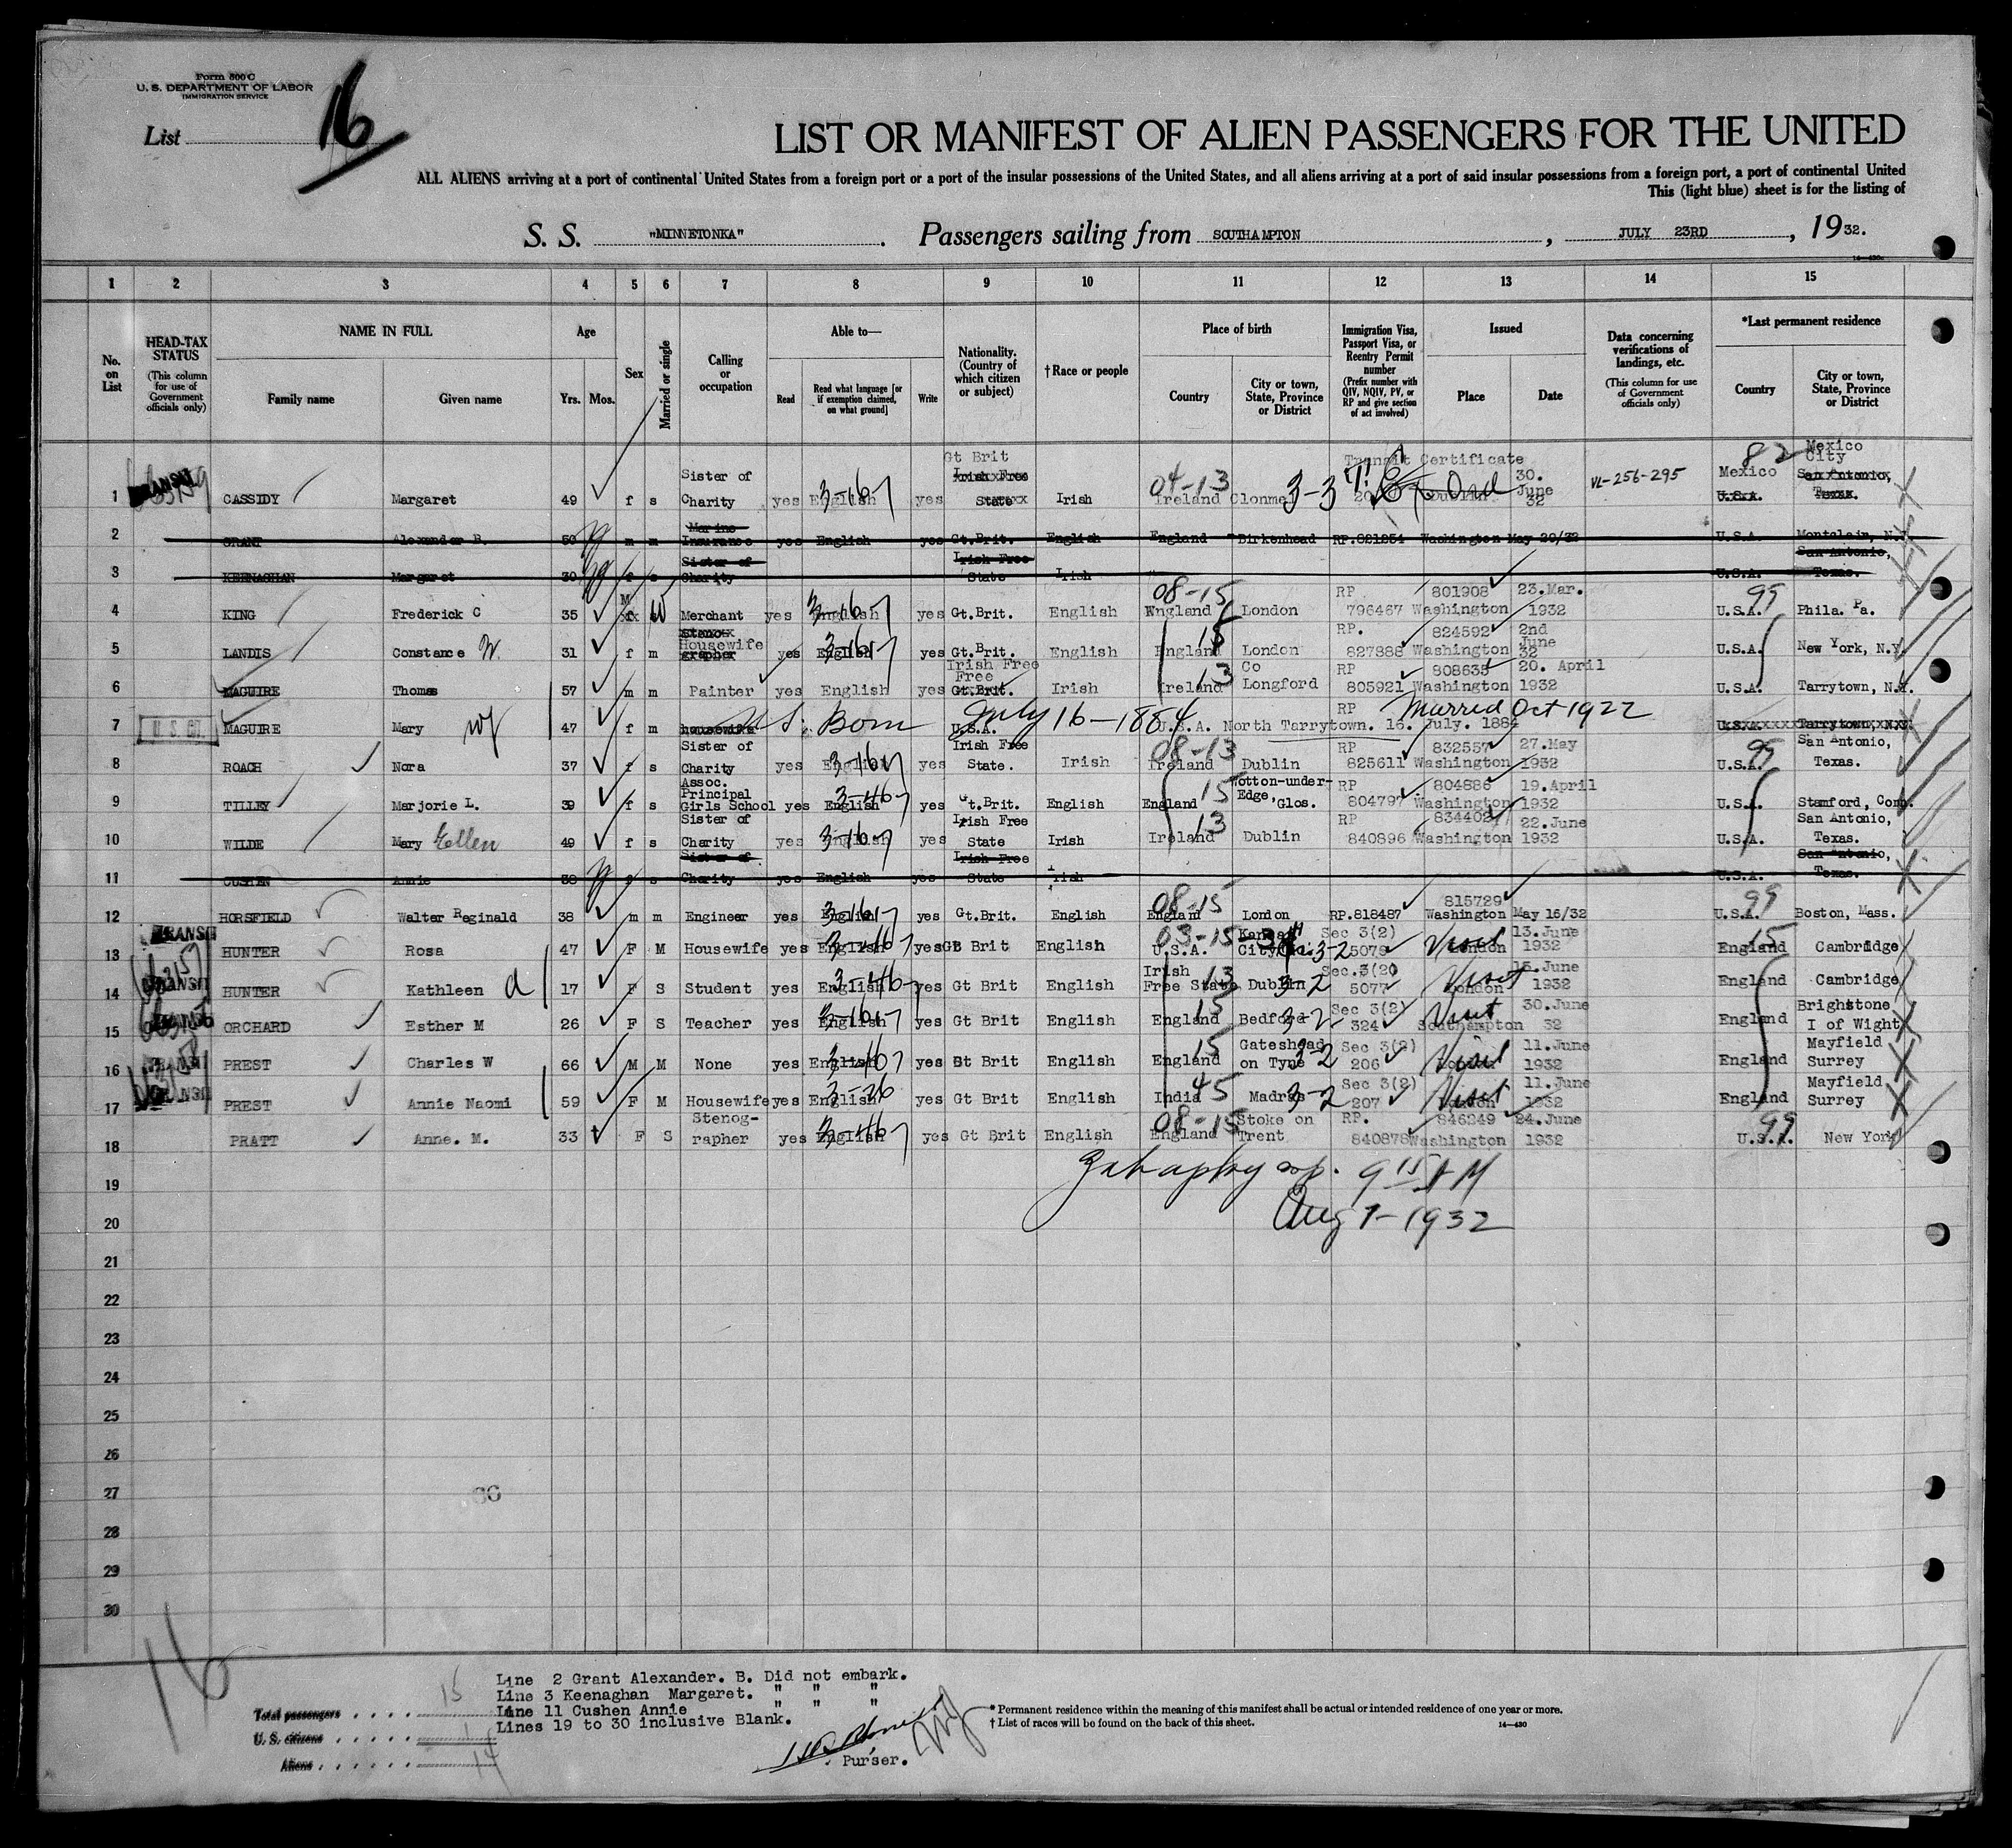 Form 500 C
U. S. DEPARTMENT OF LABOR
IMMIGRATION SERVICE
List 16
LIST OR MANIFEST OF ALIEN PASSENGERS FOR THE UNITED
ALL ALIENS arriving at a port of continental United States from a foreign port or a port of the insular possessions of the United States, and all aliens arriving at a port of said insular possessions from a foreign port, a port of continental United
This (light blue) sheet is for the listing of
S. S. "MINNETONKA". Passengers sailing from SOUTHAMPTON, JULY 23RD, 1932.
1 2 3 4 5 6 7 8 9 10 11 12 13 14 15
No. on List
HEAD-TAX STATUS (This column for use of Government officials only)
NAME IN FULL Family name Given name
Age Yrs. Mos.
Sex
Married or single
Calling or occupation
Able to— Read Read what language [or if exemption claimed, on what ground] Write
Nationality. (Country of which citizen or subject)
† Race or people
Place of birth Country City or town, State, Province or District
Immigration Visa, Passport Visa, or Reentry Permit number (Prefix number with QIV, NQIV, PV, or RP and give section of act involved)
Issued Place Date
Data concerning verifications of landings, etc. (This column for use of Government officials only)
*Last permanent residence Country City or town, State, Province or District
1 TRANSIT CASSIDY Margaret 49 f s Sister of Charity yes English 3-16 yes Gt Brit Irish Free State Irish 04-13 Ireland Clonmel 3-3 Transit Certificate Dublin 30. June 32 VL-256-295 82 Mexico U.S.A. Mexico City San Antonio, Texas.
2 GRANT Alexander B. 50 m m Marine Insurance yes English yes Gt.Brit. English England Birkenhead RP.821254 Washington May 20/32 U.S.A. Montclair, N.J.
3 KEENAGHAN Margaret 30 f s Sister of Charity Irish Free State Irish U.S.A. San Antonio, Texas.
4 KING Frederick C 35 M W Merchant yes English 3-16 yes Gt.Brit. English 08-15 England London RP 796467 801908 Washington 23.Mar. 1932 99 U.S.A. Phila. Pa.
5 LANDIS Constance W. 31 f m Stenographer Housewife yes English 3-16 yes Gt.Brit. English 15 England London RP. 827888 824592 Washington 2nd June 32 U.S.A. New York, N.Y.
6 MAGUIRE Thomas 57 m m Painter yes English yes Irish Free Gt.Brit. Irish 13 Ireland Co Longford RP 805921 808635 Washington 20. April 1932 U.S.A. Tarrytown, N.Y.
7 MAGUIRE Mary wf 47 f m housewife U.S. Born July 16-1884 U.S.A. U.S.A. North Tarrytown. 16. July. 1884 RP Married Oct 1922 U.S.A. Tarrytown, N.Y.
8 ROACH Nora 37 f s Sister of Charity yes English 3-16 yes Irish Free State. Irish 08-13 Ireland Dublin RP 825611 832557 Washington 27.May 1932 99 U.S.A. San Antonio, Texas.
9 TILLEY Marjorie L. 39 f s Assoc. Principal Girls School yes English 3-46 yes Gt.Brit. English 15 England Wotton-under-Edge, Glos. RP 804797 804886 Washington 19.April 1932 U.S.A. Stamford, Conn.
10 WILDE Mary Ellen 49 f s Sister of Charity yes English 3-16 yes Irish Free State Irish 13 Ireland Dublin RP 840896 834402 Washington 22.June 1932 U.S.A. San Antonio, Texas.
11 CUSHEN Annie 38 f s Sister of Charity yes English yes Irish Free State Irish U.S.A. San Antonio, Texas.
12 HORSFIELD Walter Reginald 38 m m Engineer yes English 3-16 yes Gt.Brit. English 08-15 England London RP.818487 815729 Washington May 16/32 99 U.S.A. Boston, Mass.
13 TRANSIT HUNTER Rosa 47 F M Housewife yes English yes Gt Brit English 03-15 U.S.A. Kansas City 3-2 Sec 3(2) 5079 Visit London 13.June 1932 15 England Cambridge
14 TRANSIT HUNTER Kathleen A 17 F S Student yes English 3-46 yes Gt Brit English 13 Irish Free State Dublin 3-2 Sec.3(2) 5077 Visit London 15.June 1932 England Cambridge
15 ORCHARD Esther M 26 F S Teacher yes English 3-16 yes Gt Brit English 15 England Bedford 3-2 Sec 3(2) 324 Visit Southampton 30.June 32 England Brighstone I of Wight
16 TRANSIT PREST Charles W 66 M M None yes English 3-46 yes Gt Brit English 15 England Gateshead on Tyne 3-2 Sec 3(2) 206 Visit London 11.June 1932 England Mayfield Surrey
17 TRANSIT PREST Annie Naomi 59 F M Housewife yes English 3-26 yes Gt Brit English 45 India Madras 3-2 Sec 3(2) 207 Visit London 11.June 1932 England Mayfield Surrey
18 PRATT Anne. M. 33 F S Stenographer yes English 3-46 yes Gt Brit English 08-15 England Stoke on Trent RP. 840878 846249 Washington 24.June 1932 99 U.S.A. New York
19 9 15 AM
20 Aug 1-1932
21
22
23
24
25
26
27
28
29
30
16
Line 2 Grant Alexander. B. Did not embark.
Line 3 Keenaghan Margaret. " " "
Line 11 Cushen Annie " " "
Lines 19 to 30 inclusive Blank.
Total passengers 15
U. S. citizens 1
Aliens 14
Purser.
* Permanent residence within the meaning of this manifest shall be actual or intended residence of one year or more.
† List of races will be found on the back of this sheet. 14—430